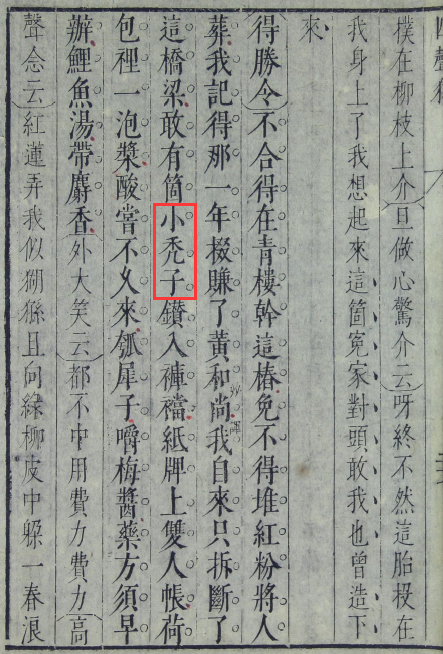 四聲猿
撲在柳枝上介〔旦做心驚介〕云呀終不然這胎投在
我身上了我想起來這箇冤家對頭敢我也曾造下
來
〔得勝令〕不合得在青樓幹這樁免不得堆紅粉將人
葬我記得那一年掇賺了黃和尚我自來只拆斷了
妙譚
這橋梁敢有箇小禿子鑚入褲襠紙牌上雙人帳荷
包裡一泡漿酸嘗不久來瓠犀子嚼梅醬藥方須早
辦鯉魚湯帶麝香〔外大笑云〕都不中用費力費力〔高
聲念云〕紅蓮弄我似猢猻且向綠柳皮中躱一春浪